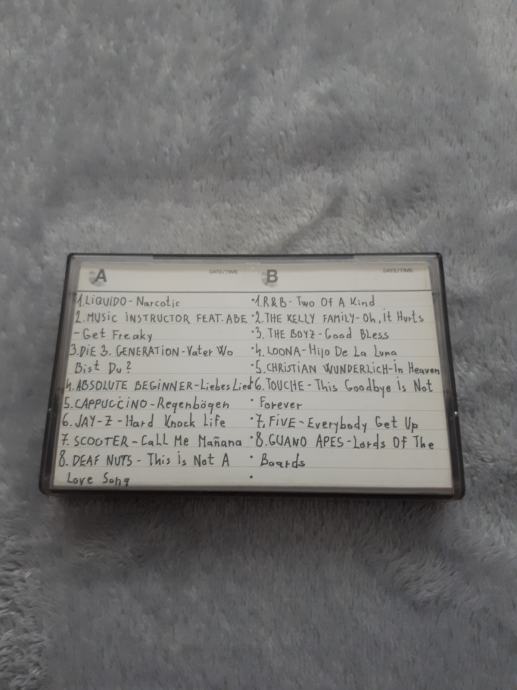 A DATE/TIME
1. LIQUIDO - Narcotic
2. MUSIC INSTRUCTOR FEAT. ABE
- Get Freaky
3. DIE 3. GENERATION - Vater Wo
Bist Du?
4. ABSOLUTE BEGINNER - Liebes Lied
5. CAPPUCCINO - Regenbögen
6. JAY-Z - Hard Knock Life
7. SCOOTER - Call Me Mañana
8. DEAF NUTS - This is Not A
Love Song
B DATE/TIME
1. R&B - Two Of A Kind
2. THE KELLY FAMILY - Oh, it Hurts
3. THE BOYZ - Good Bless
4. LOONA - Hijo De La Luna
5. CHRISTIAN WUNDERLICH - In Heaven
6. TOUCHE - This Goodbye is Not
Forever
7. FIVE - Everybody Get Up
8. GUANO APES - Lords Of The
Boards